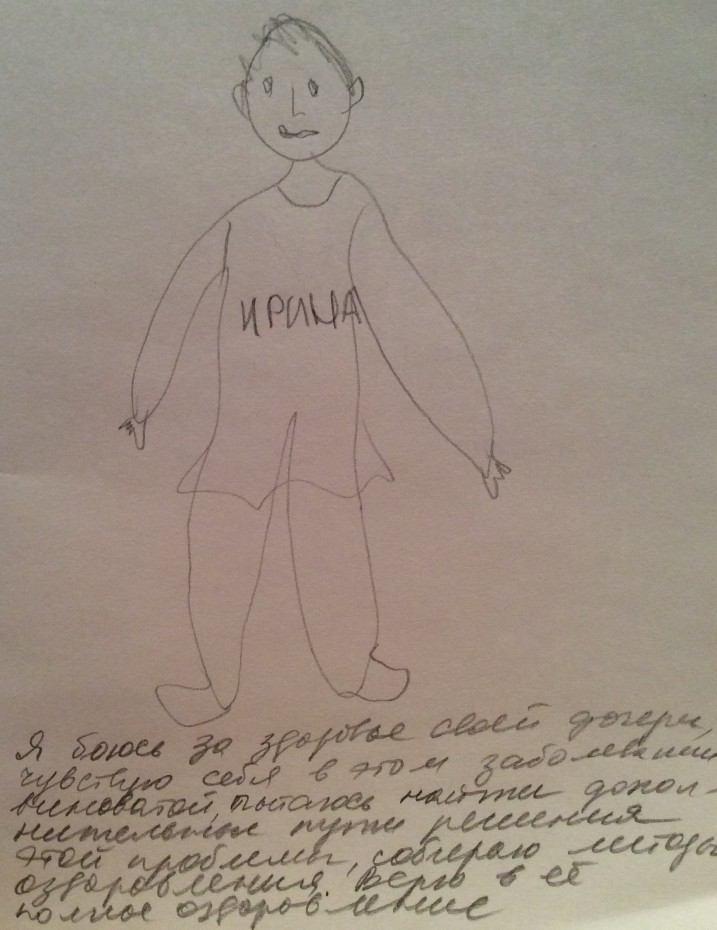 ИРИНА
Я боюсь за здоровье своей дочери,
чувствую себя в этом заболевании
виноватой, пытаюсь найти допол-
нительные пути решения
этой проблемы, собираю методы
оздоровления. Верю в её
полное оздоровление